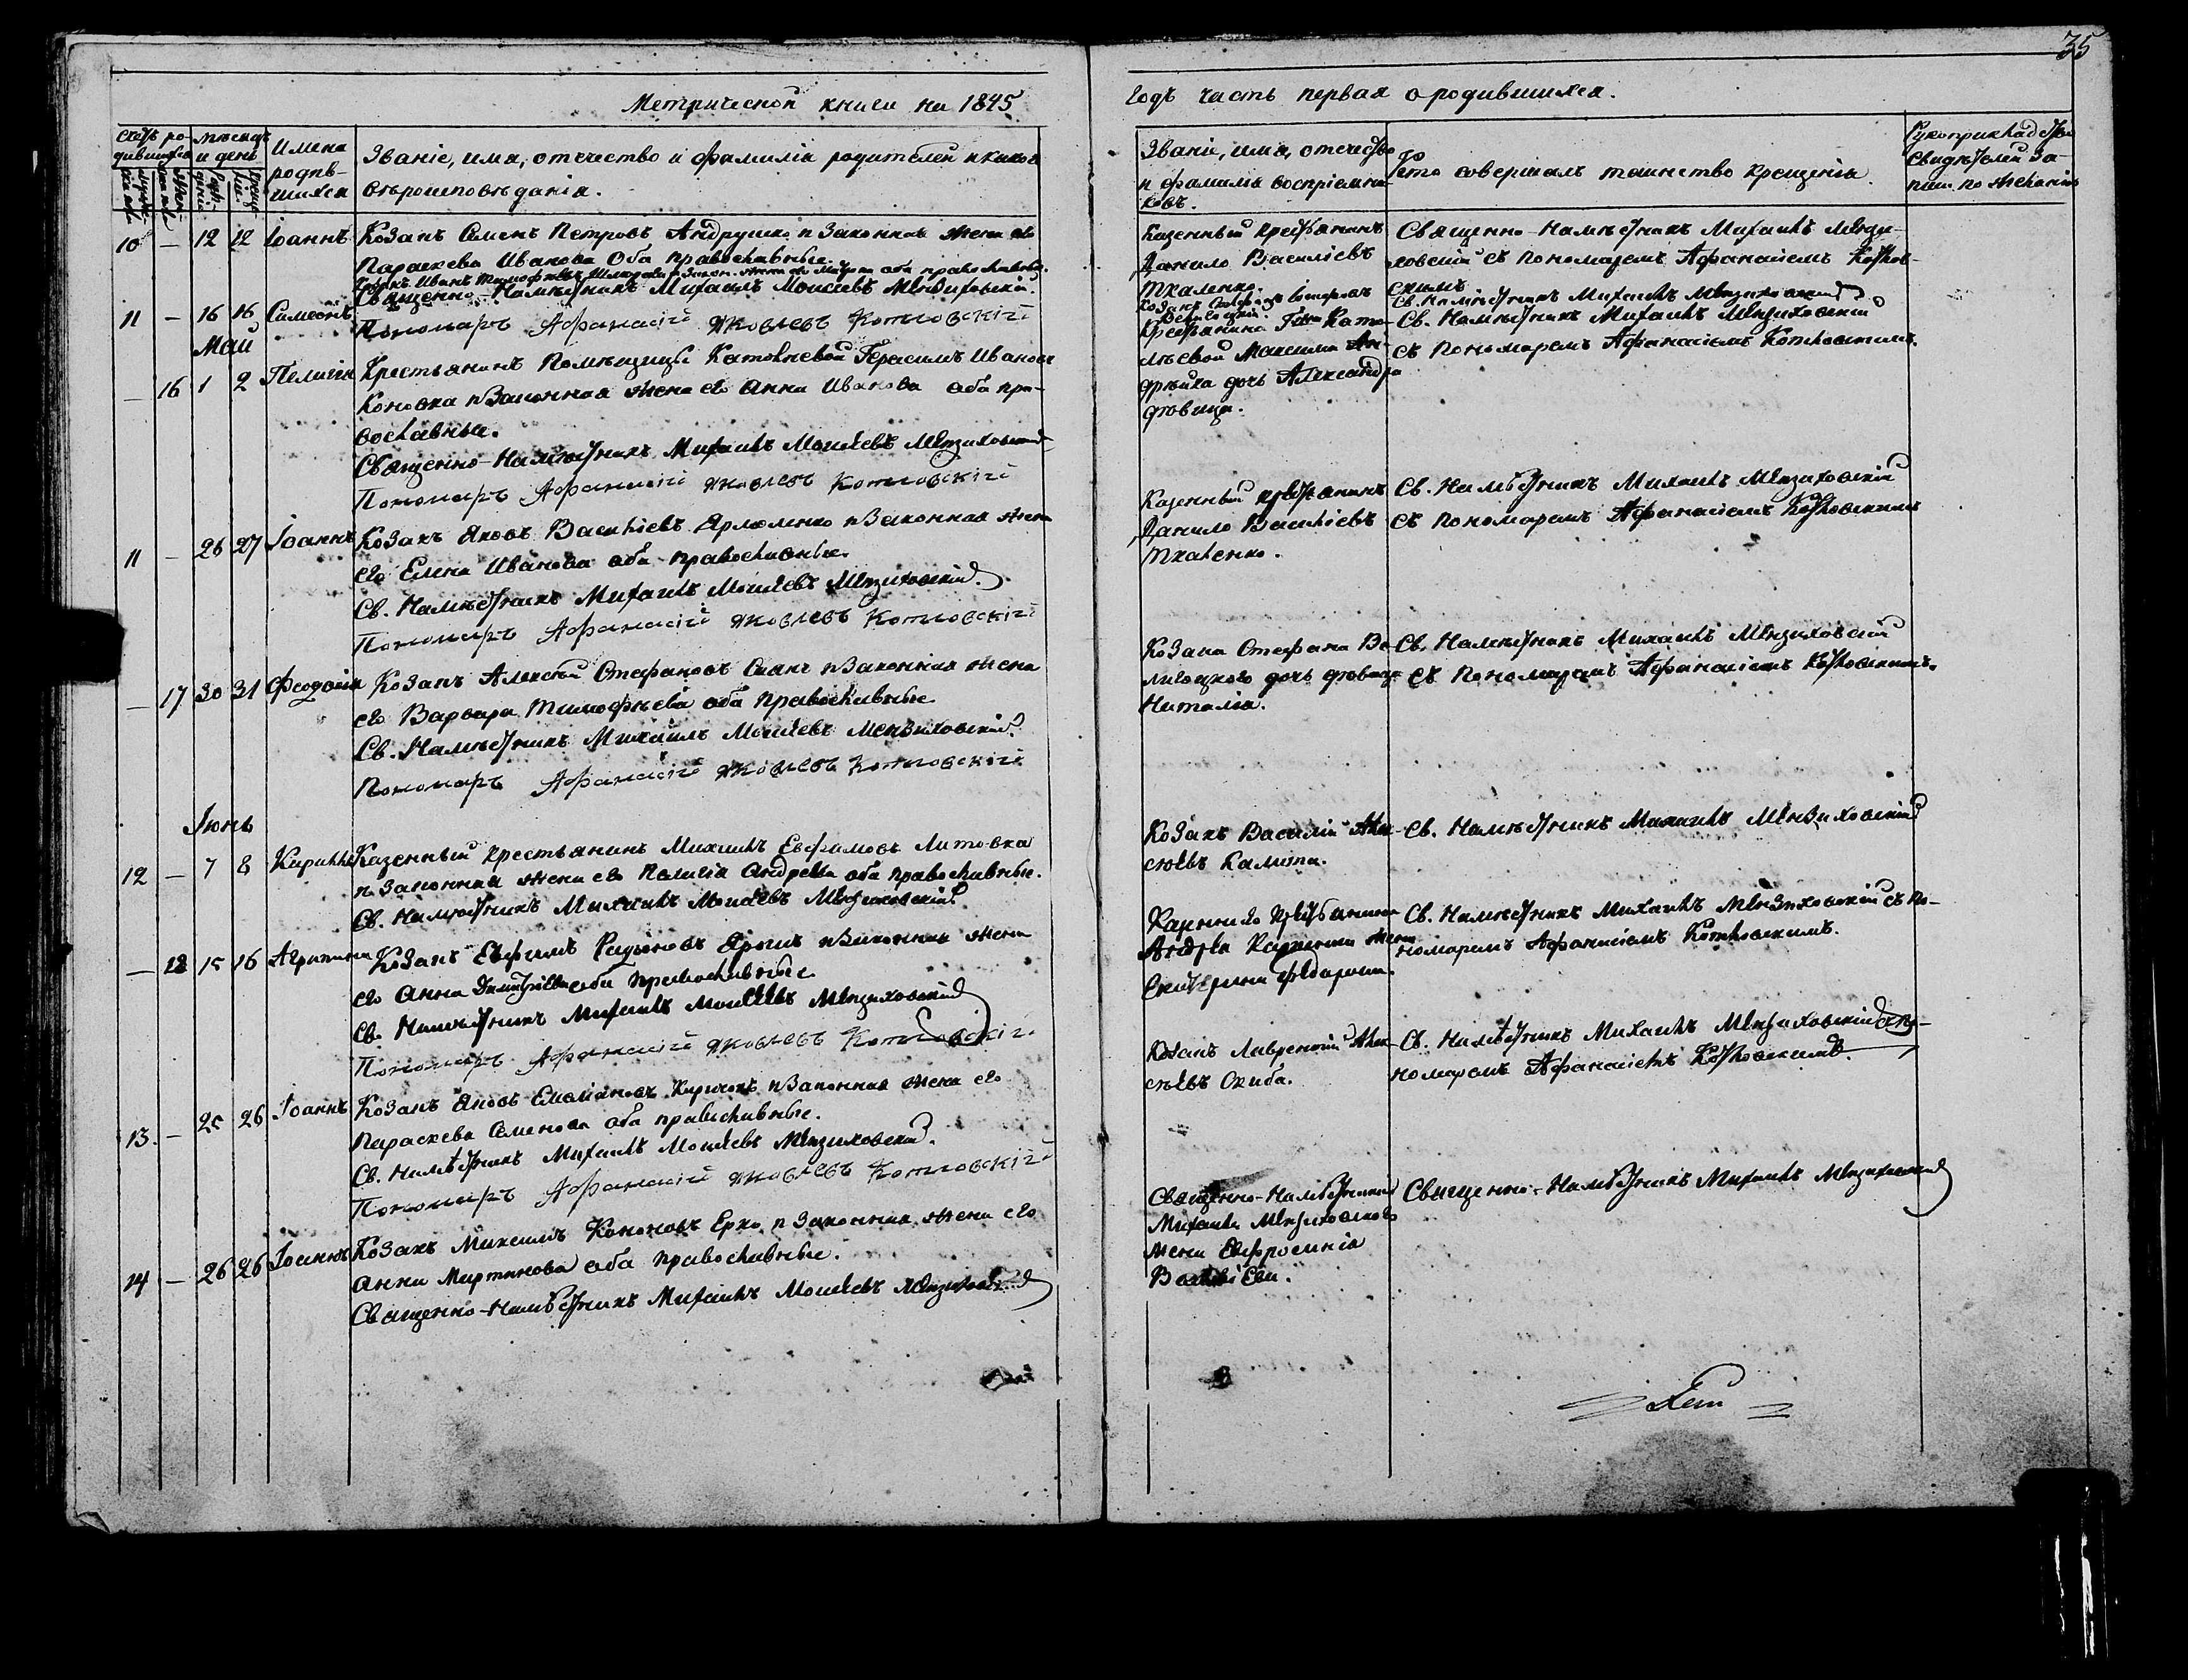 35
Метрической книги на 1845 годъ часть первая о родившихся.
Счетъ ро-
дившихся
Мѣсяцъ
и день
Имена
родив-
шихся
Званіе, имя, отчество и фамилія родителей и какого
вѣроисповѣданія.
Званіе, имя, отчество
и фамилія воспріемни-
ковъ.
Кто совершалъ таинство крещенія.
Рукоприкладство
свидѣтелей за-
писи по желанію
10 — 12 12 Іоаннъ
Козакъ Семенъ Петровъ Андрушко и Законная жена его
Параскева Иванова Оба православные.
Козакъ Иванъ Тимофѣевъ и Закон. жена его оба православные.
Священно-Намѣстникъ Михаилъ Моисеевъ Мензиховскій.
Пономарь Афанасій Яковлевъ Котловскій
Казенный крестьянинъ
Данило Василіевъ
Ткаленко.
Священно-Намѣстникъ Михаилъ Мензи-
ховскій съ пономаремъ Афанасіемъ Котлов-
скимъ
11 — 16 16 Симеонъ
Козакъ
Св. Намѣстникъ Михаилъ Мензиховскій
Май
— 16 1 2 Пелагія
Крестьянинъ Помѣщицы Герасимъ Ивановъ
Коновка и Законная жена его Анна Иванова оба пра-
вославные.
Священно-Намѣстникъ Михаилъ Моисеевъ Мензиховскій
Пономарь Афанасій Яковлевъ Котловскій
дочь Александра
дѣвица.
Св. Намѣстникъ Михаилъ Мензиховскій
съ пономаремъ Афанасіемъ Котловскимъ.
11 — 26 27 Іоаннъ
Козакъ Яковъ Василіевъ Ярломенко и Законная жена
его Елена Иванова оба православные.
Св. Намѣстникъ Михаилъ Моисеевъ Мензиховскій
Пономарь Афанасій Яковлевъ Котловскій
Казенный крестьянинъ
Данило Василіевъ
Ткаленко.
Св. Намѣстникъ Михаилъ Мензиховскій
съ пономаремъ Афанасіемъ Котловскимъ
— 17 30 31 Феодосія
Козакъ Алексѣй Стефановъ и Законная жена
его Варвара Тимофѣева оба православные.
Св. Намѣстникъ Михаилъ Моисеевъ Мензиховскій.
Пономарь Афанасій Яковлевъ Котловскій
Козака Стефана Ве-
лигоцкого дочь дѣвица
Наталія.
Св. Намѣстникъ Михаилъ Мензиховскій
съ пономаремъ Афанасіемъ Котловскимъ.
Іюнь
12 — 7 8 Кириллъ
Казенный крестьянинъ Михаилъ Евфимовъ Литовка
и Законная жена его Пелагія Андреева оба православные.
Св. Намѣстникъ Михаилъ Моисеевъ Мензиховскій
Козакъ Василій Алек-
сѣевъ Калита.
Св. Намѣстникъ Михаилъ Мензиховскій
— 18 15 16 Агрипина
Козакъ Евфимъ Радіоновъ Ярошъ и Законная жена
его Анна Димитріева оба православные
Св. Намѣстникъ Михаилъ Моисеевъ Мензиховскій
Пономарь Афанасій Яковлевъ Котловскій
Казенного крестьянина
Андрея жена
Екатерина Федорова.
Св. Намѣстникъ Михаилъ Мензиховскій съ по-
номаремъ Афанасіемъ Котловскимъ.
13. — 25 26 Іоаннъ
Козакъ Яковъ Емеліановъ Киричокъ и Законная жена его
Параскева Семенова оба православные.
Св. Намѣстникъ Михаилъ Моисеевъ Мензиховскій.
Пономарь Афанасій Яковлевъ Котловскій
Козакъ Лаврентій Алек-
сѣевъ Скиба.
Св. Намѣстникъ Михаилъ Мензиховскій съ по-
номаремъ Афанасіемъ Котловскимъ.
14 — 26 26 Іоаннъ
Козакъ Максимъ Кононовъ Ерко и Законная жена его
Анна Мартинова оба православные.
Священно-Намѣстникъ Михаилъ Моисеевъ Мензиховскій
Священно-Намѣстника
Михаила Мензиховского
жена Евфросинія
Василіева.
Священно-Намѣстникъ Михаилъ Мензиховскій